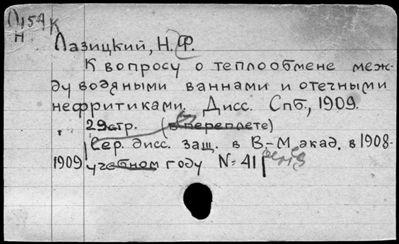 П154 К
Н
Лазицкий, Н. Ф.
К вопросу о теплообмене меж-
ду водяными ваннами и отечными
нефритиками. Дисс. Спб., 1909.
29 стр. (в переплете)
(Сер. дисс. защ. в В-М. акад. в 1908-
1909 учебном году N=41)